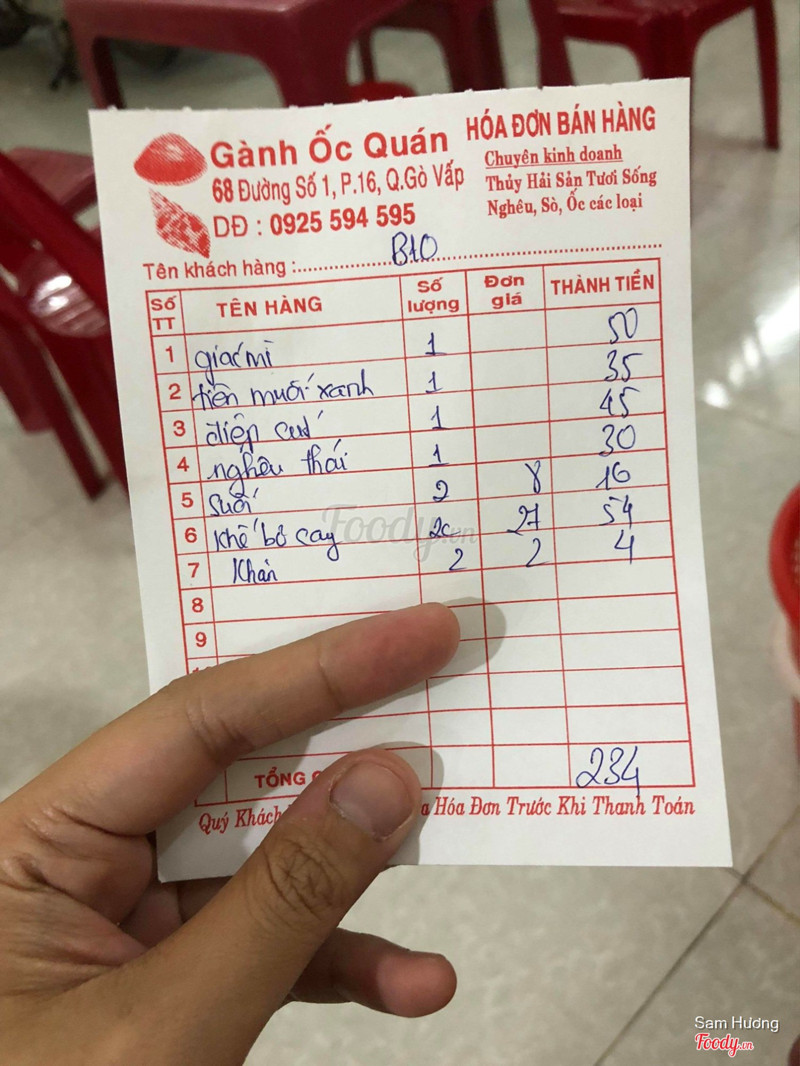 Gành Ốc Quán
68 Đường Số 1, P.16, Q.Gò Vấp
DĐ : 0925 594 595
HÓA ĐƠN BÁN HÀNG
Chuyên kinh doanh
Thủy Hải Sản Tươi Sống
Nghêu, Sò, Ốc các loại
Tên khách hàng : B10
Số TT TÊN HÀNG Số lượng Đơn giá THÀNH TIỀN
1 giác mì 1 50
2 tiền muối xanh 1 35
3 điệp 1 45
4 nghêu thái 1 30
5 Suối 2 8 16
6 Khế bò cay 2c 27 54
7 Khăn 2 2 4
8
9
TỔNG 234
Quý Khách Hóa Đơn Trước Khi Thanh Toán
Foody.vn
Sam Hương
Foody.vn